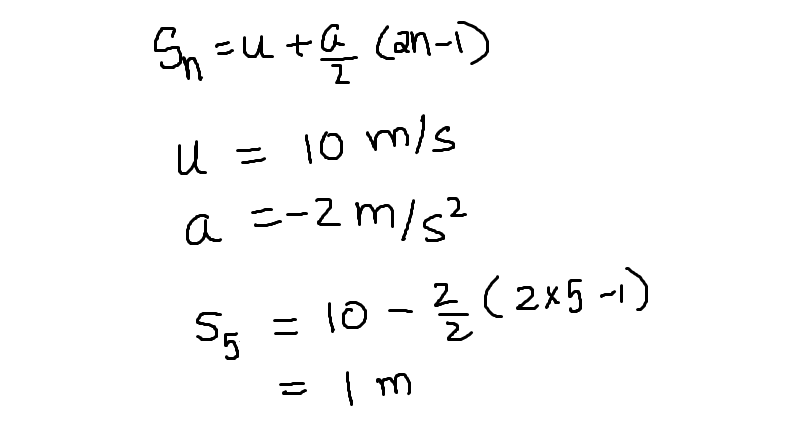 Sn = u + a/2 (2n-1)
u = 10 m/s
a = -2 m/s²
S5 = 10 - 2/2 (2×5-1)
= 1 m